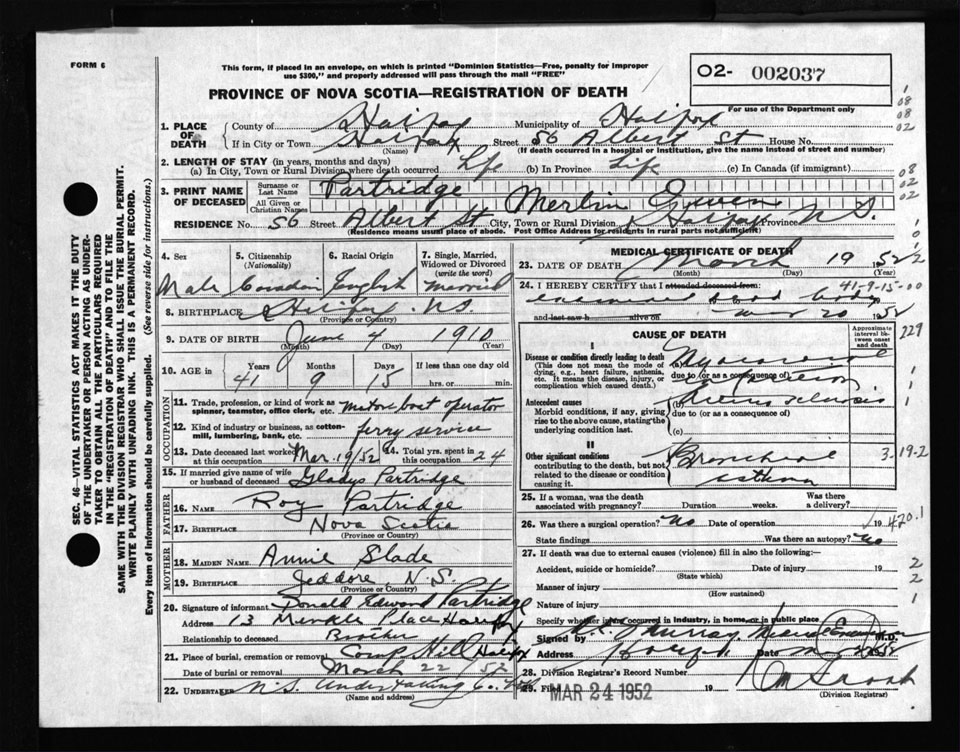 FORM 6
This form, if placed in an envelope, on which is printed "Dominion Statistics—Free, penalty for improper
use $300," and properly addressed will pass through the mail "FREE"
02- 002037
PROVINCE OF NOVA SCOTIA—REGISTRATION OF DEATH
For use of the Department only
1. PLACE OF DEATH
County of Halifax Municipality of Halifax
If in City or Town Halifax Street 56 Albert St House No.
(Name) (If death occurred in a hospital or institution, give the name instead of street and number)
2. LENGTH OF STAY (in years, months and days)
(a) In City, Town or Rural Division where death occurred. Life (b) In Province Life (c) In Canada (if immigrant)
3. PRINT NAME OF DECEASED
Surname or Last Name Partridge
All Given or Christian Names Merlin
RESIDENCE No. 56 Street Albert St City, Town or Rural Division Halifax Province N.S.
(Residence means usual place of abode. Post Office Address for residents in rural parts not sufficient)
4. Sex Male
5. Citizenship (Nationality) Canadian
6. Racial Origin English
7. Single, Married, Widowed or Divorced (write the word) Married
8. BIRTHPLACE Halifax N.S.
(Province or Country)
9. DATE OF BIRTH June 4 1910
(Month) (Day) (Year)
10. AGE in Years 41 Months 9 Days 15 If less than one day old
hrs. or min.
OCCUPATION
11. Trade, profession, or kind of work as spinner, teamster, office clerk, etc. Motorboat operator
12. Kind of industry or business, as cotton-mill, lumbering, bank, etc. ferry service
13. Date deceased last worked at this occupation Mar. 19/52 14. Total yrs. spent in this occupation 24
15. If married give name of wife or husband of deceased Gladys Partridge
FATHER
16. NAME Roy Partridge
17. BIRTHPLACE Nova Scotia
(Province or Country)
MOTHER
18. MAIDEN NAME Annie Slade
19. BIRTHPLACE Jeddore, N.S.
(Province or Country)
20. Signature of informant Donald Edward Partridge
Address 13 Place Halifax
Relationship to deceased Brother
21. Place of burial, cremation or removal Camp Hill Halifax
Date of burial or removal March 22 / 52
22. UNDERTAKER N.S. Undertaking Co.
(Name and address)
MEDICAL CERTIFICATE OF DEATH
23. DATE OF DEATH March 19 1952
(Month) (Day) (Year)
41-9-15-00
24. I HEREBY CERTIFY that I attended deceased from
examined dead body
and last saw h alive on 20 1952
CAUSE OF DEATH
Approximate interval between onset and death
I
Disease or condition directly leading to death
(This does not mean the mode of dying, e.g., heart failure, asthenia, etc. It means the disease, injury, or complication which caused death.)
(a) Myocardial
due to (or as a consequence of)
Antecedent causes
Morbid conditions, if any, giving rise to the above cause, stating the underlying condition last.
(b) sclerosis
due to (or as a consequence of)
(c)
II
Other significant conditions
contributing to the death, but not related to the disease or condition causing it.
Bronchial
asthma
3-19-2
25. If a woman, was the death associated with pregnancy? Duration weeks. Was there a delivery?
26. Was there a surgical operation? No Date of operation 19
420.1
State findings Was there an autopsy? No
27. If death was due to external causes (violence) fill in also the following:—
Accident, suicide or homicide? Date of injury 19
(State which)
Manner of injury
(How sustained)
Nature of injury
Specify whether injury occurred in industry, in home, or in public place
Signed by Murray M.D.
Address Halifax Date
28. Division Registrar's Record Number
29. Filed MAR 24 1952 19
(Division Registrar)
SEC. 46—VITAL STATISTICS ACT MAKES IT THE DUTY
OF THE UNDERTAKER OR PERSON ACTING AS UNDERTAKER TO OBTAIN ALL THE PARTICULARS REQUIRED
IN THE "REGISTRATION OF DEATH" AND TO FILE THE
SAME WITH THE DIVISION REGISTRAR WHO SHALL ISSUE THE BURIAL PERMIT.
WRITE PLAINLY WITH UNFADING INK. THIS IS A PERMANENT RECORD.
Every item of information should be carefully supplied. (See reverse side for instructions.)